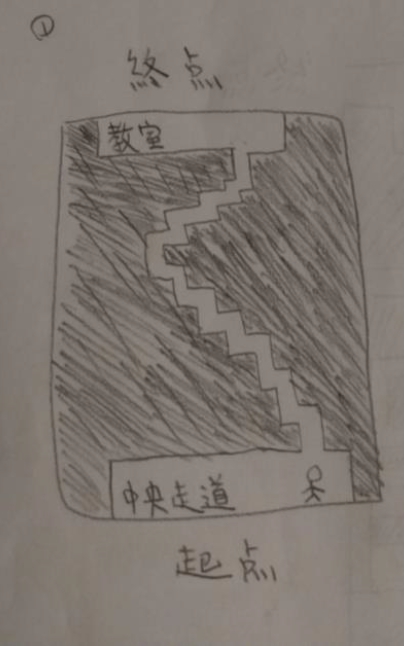 ①
終点
教室
中央走道
起点